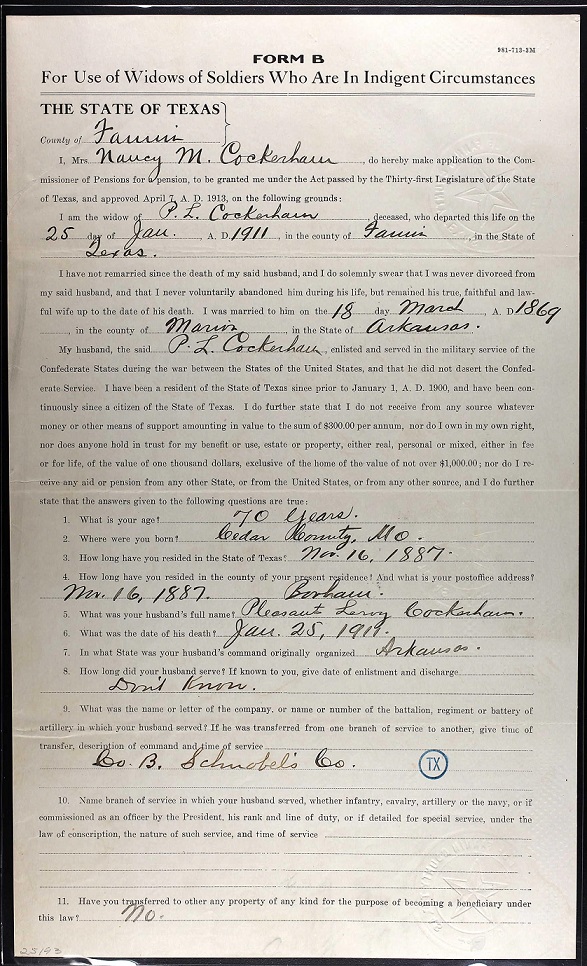 981-713-3M
FORM B
For Use of Widows of Soldiers Who Are In Indigent Circumstances
THE STATE OF TEXAS}
County of Fannin
I, Mrs. Nancy M. Cockerham, do hereby make application to the Com-
missioner of Pensions for a pension, to be granted me under the Act passed by the Thirty-first Legislature of the State
of Texas, and approved April 7, A. D. 1913, on the following grounds:
I am the widow of P. L. Cockerham, deceased, who departed this life on the
25 day of Jan., A. D. 1911, in the county of Fannin, in the State of
Texas.
I have not remarried since the death of my said husband, and I do solemnly swear that I was never divorced from
my said husband, and that I never voluntarily abandoned him during his life, but remained his true, faithful and law-
ful wife up to the date of his death. I was married to him on the 18 day March, A. D. 1869
, in the county of Marion, in the State of Arkansas.
My husband, the said P. L. Cockerham, enlisted and served in the military service of the
Confederate States during the war between the States of the United States, and that he did not desert the Confed-
erate Service. I have been a resident of the State of Texas since prior to January 1, A. D. 1900, and have been con-
tinuously since a citizen of the State of Texas. I do further state that I do not receive from any source whatever
money or other means of support amounting in value to the sum of $300.00 per annum, nor do I own in my own right,
nor does anyone hold in trust for my benefit or use, estate or property, either real, personal or mixed, either in fee
or for life, of the value of one thousand dollars, exclusive of the home of the value of not over $1,000.00; nor do I re-
ceive any aid or pension from any other State, or from the United States, or from any other source, and I do further
state that the answers given to the following questions are true:
1. What is your age? 70 Years.
2. Where were you born? Cedar County, Mo.
3. How long have you resided in the State of Texas? Nov. 16, 1887.
4. How long have you resided in the county of your present residence? And what is your postoffice address?
Nov. 16, 1887. Bonham.
5. What was your husband's full name? Pleasant Leroy Cockerham.
6. What was the date of his death? Jan. 25, 1911.
7. In what State was your husband's command originally organized Arkansas.
8. How long did your husband serve? If known to you, give date of enlistment and discharge
Don't Know.
9. What was the name or letter of the company, or name or number of the battalion, regiment or battery of
artillery in which your husband served? If he was transferred from one branch of service to another, give time of
transfer, description of command and time of service
Co. B. Schnobel's Co.
TX
10. Name branch of service in which your husband served, whether infantry, cavalry, artillery or the navy, or if
commissioned as an officer by the President, his rank and line of duty, or if detailed for special service, under the
law of conscription, the nature of such service, and time of service
11. Have you transferred to other any property of any kind for the purpose of becoming a beneficiary under
this law? No.